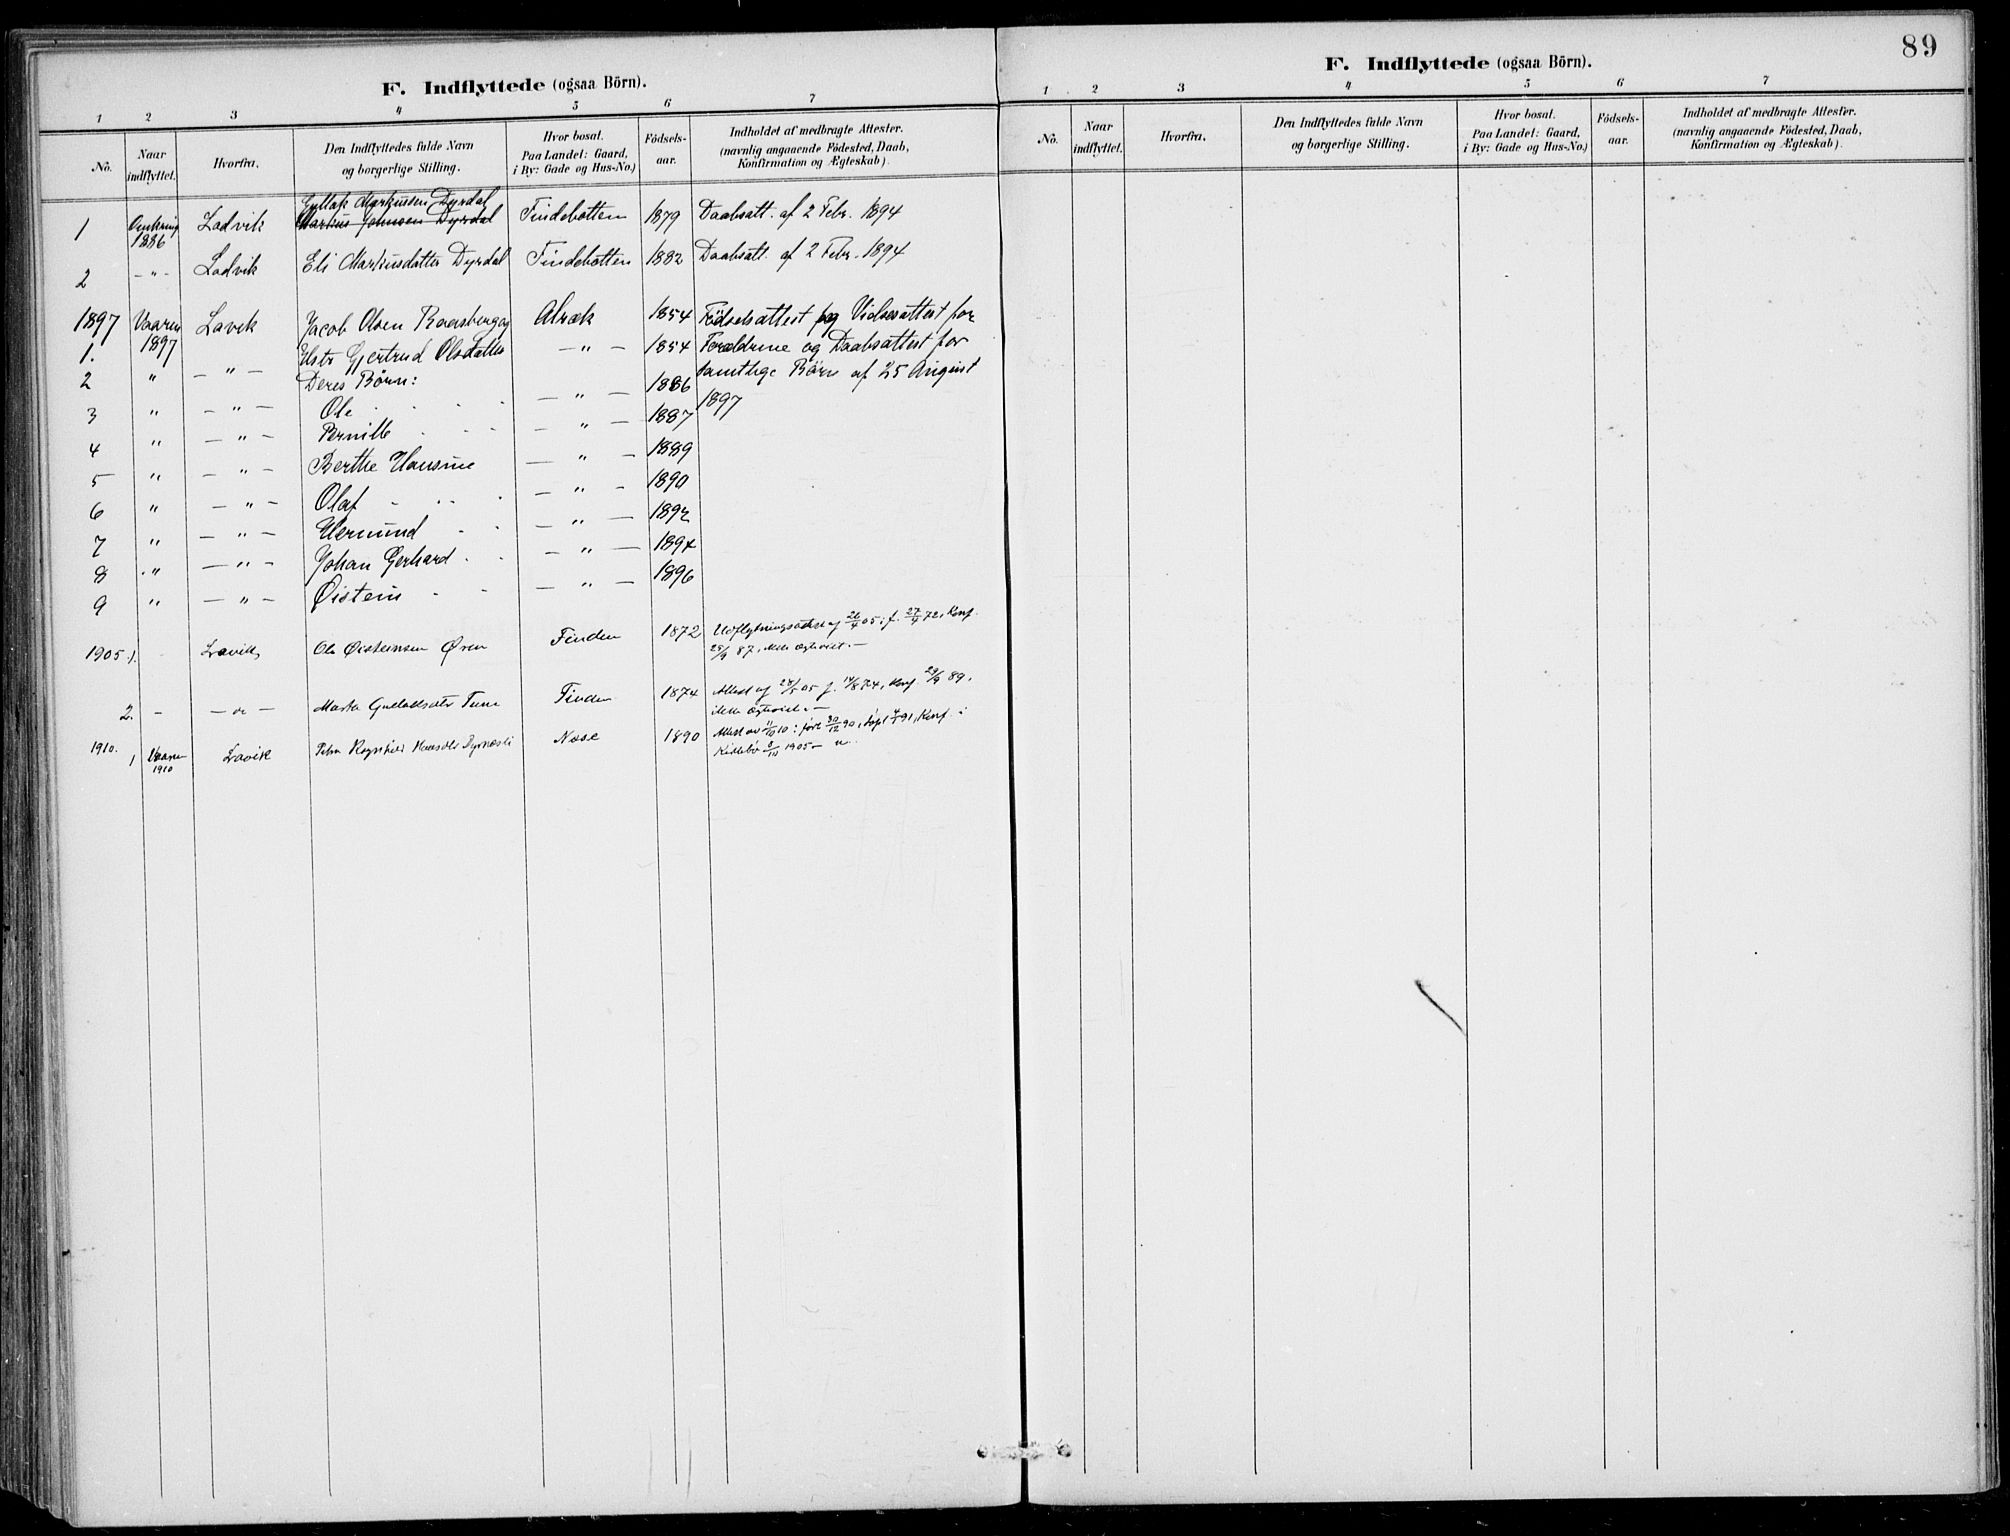 89
F. Indflyttede (ogsaa Börn).
1 2 3 4 5 6 7
No. Naar indflyttet. Hvorfra. Den Indflyttedes fulde Navn og borgerlige Stilling. Hvor bosat. Paa Landet: Gaard, i By: Gade og Hus-No.) Födsels-aar. Indholdet af medbragte Attester. (navnlig angaaende Födested, Daab, Konfirmation og Ægteskab).
Gullak Markussen Dyrdal
1 Omkring 1886 Ladvik Markus Johnsen Dyrdal Findebotten 1879 Daabsatt. af 2 Febr. 1894
2 - " - Ladvik Eli Markusdatter Dyrdal Findebotten 1882 Daabsatt. af 2 Febr. 1894
1897 Vaaren Lavik Jacob Olsen Raasberg og Alræk 1854 Födselsattest og Vielsesattest for
1. 1897 Gjertrud Olsdatter - " - 1854 Forældrene og Daabsattest for
2 " - " - Deres Börn: samtlige Börn af 25 August
3 " - " - Ole - " - 1886 1897
4 " - " - Pernille - " - 1887
5 " - " - Berthe Hansine - " - 1889
6 " - " - Olaf - " - 1890
7 " - " - Hermund - " - 1892
8 " - " - Johan Gerhard - " - 1894
9 " - " - Øistein - " - 1896
1905 1. Lavik Ole Øisteinsen Øren Finden 1872 Udflytningsattest af 26/4 05; f. 27/4 72, Konf.
25/9 87, ikke ægteviet. -
2. - - " - Marta Tune Finden 1874 Attest af 28/5 05 f. 14/8 74, Konf. 29/9 89,
ikke ægteviet. -
1910. 1 Vaaren 1910 Lavik Petra Ragnhild Hansdtr Dyrnæsli Nose 1890 Attest av 11/10 10: født 30/12 90, døpt 4/1 91, Konf. i
Kirkebø 8/10 1905 -
F. Indflyttede (ogsaa Börn).
1 2 3 4 5 6 7
No. Naar indflyttet. Hvorfra. Den Indflyttedes fulde Navn og borgerlige Stilling. Hvor bosat. Paa Landet: Gaard, i By: Gade og Hus-No.) Födsels-aar. Indholdet af medbragte Attester. (navnlig angaaende Födested, Daab, Konfirmation og Ægteskab).